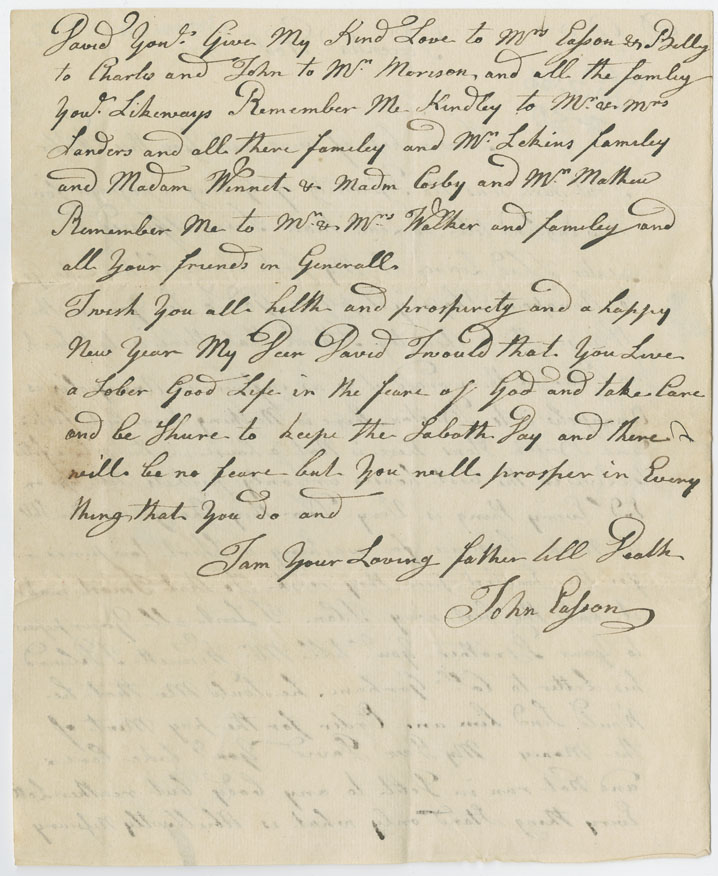 David Your Give My Kind Love to Mrs Easson & Billy
to Charles and John to Mr Morison and all the famley
Your Likeways Remember Me Kindley to Mr & Mrs
Sanders and all there fameley and Mr Lekins fameley
and Madam Winnet & Madm Cosby and Mr Mathew
Remember Me to Mr & Mrs Walker and fameley and
all Your friends in Generall
I wish You all helth and prosperety and a happy
New Year My Deer David I would that You Live
a Sober Good Life in the feare of God and take Care
and be Shure to keepe the Sabath Day and there
will be no feare but You will prosper in Every
thing that You do and
I am Your Loving father till Death
John Easson